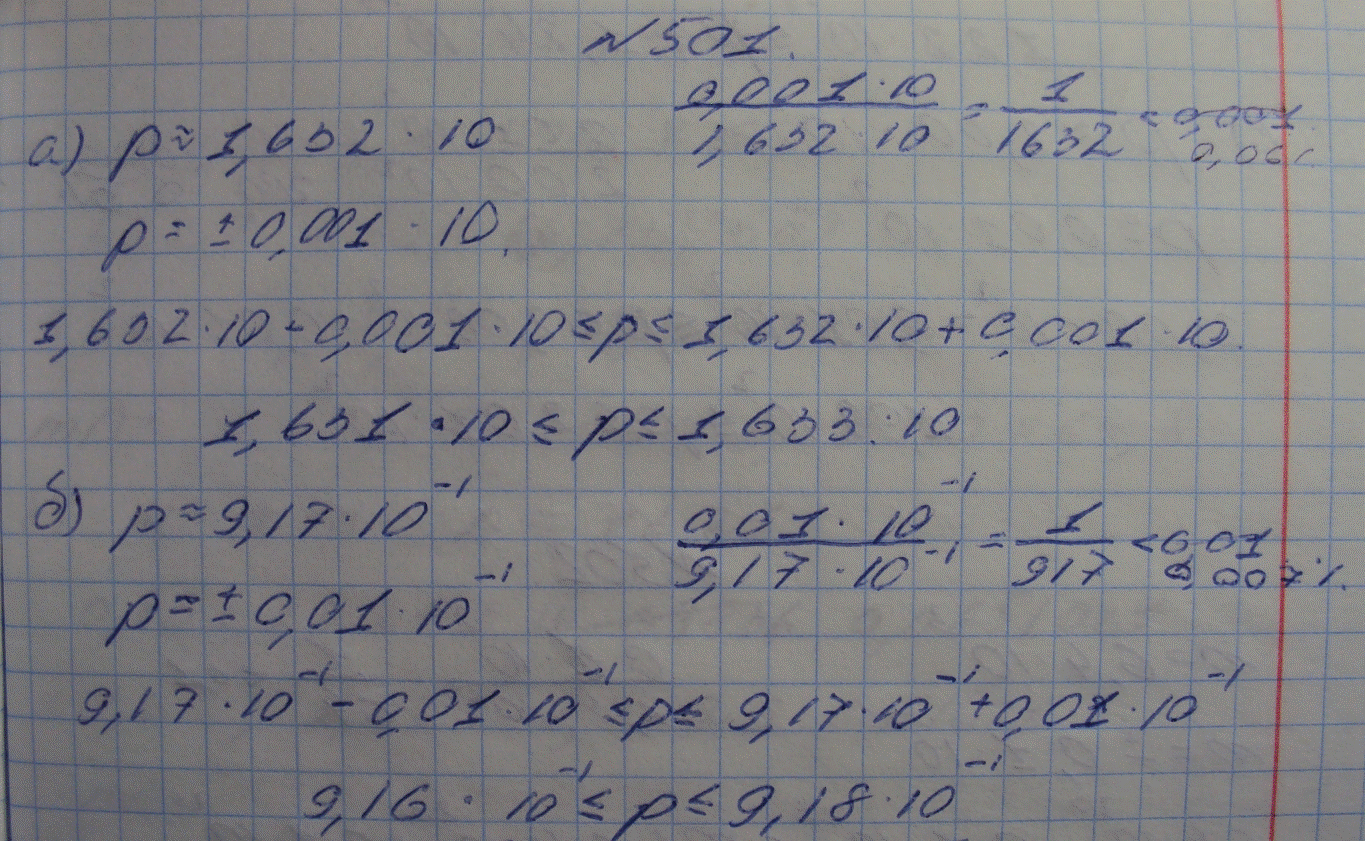 №501.
а) p ≈ 1,632 · 10
0,001 · 10 / 1,632 · 10 = 1 / 1632 <
p = ± 0,001 · 10.
1,632 · 10 - 0,001 · 10 ≤ p ≤ 1,632 · 10 + 0,001 · 10.
1,631 · 10 ≤ p ≤ 1,633 · 10
б) p ≈ 9,17 · 10⁻¹
0,01 · 10⁻¹ / 9,17 · 10⁻¹ = 1 / 917 < 0,01
p = ± 0,01 · 10⁻¹
9,17 · 10⁻¹ - 0,01 · 10⁻¹ ≤ p ≤ 9,17 · 10⁻¹ + 0,01 · 10⁻¹
9,16 · 10⁻¹ ≤ p ≤ 9,18 · 10⁻¹